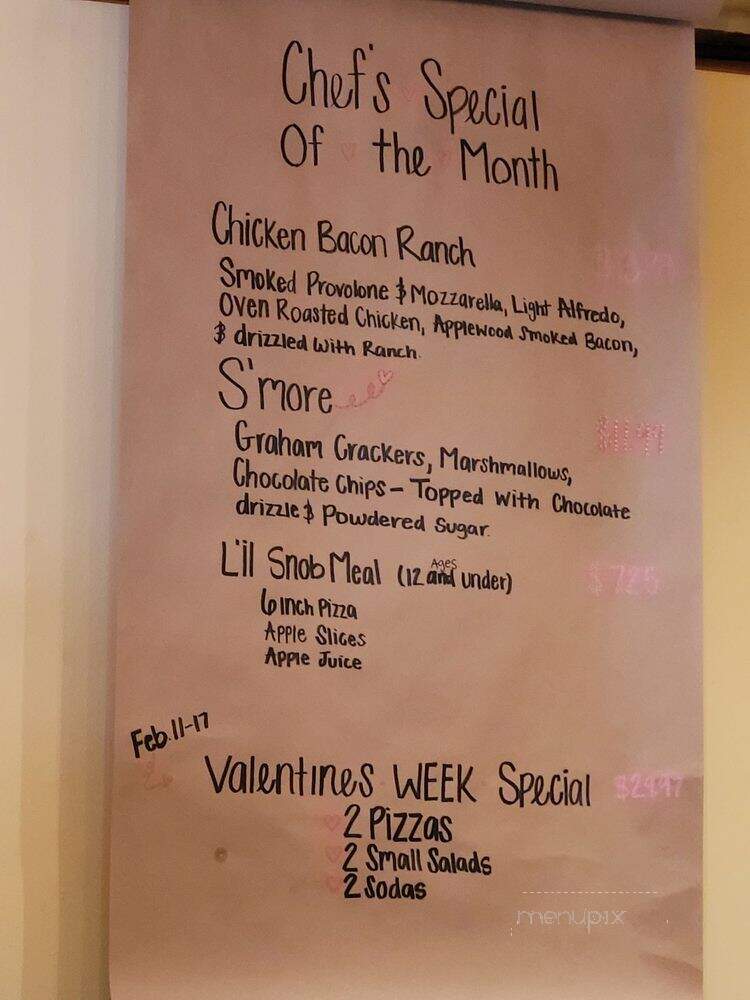 Chef's Special
Of the Month
Chicken Bacon Ranch
Smoked Provolone & Mozzarella, Light Alfredo,
Oven Roasted Chicken, Applewood Smoked Bacon,
& drizzled with Ranch.
S'more
Graham Crackers, Marshmallows,
Chocolate Chips - Topped with Chocolate
drizzle & Powdered Sugar.
L'il Snob Meal (12 and under)
Ages
$7.25
6 inch Pizza
Apple Slices
Apple Juice
Feb. 11-17
Valentines WEEK Special
2 Pizzas
2 Small Salads
2 Sodas
menupix